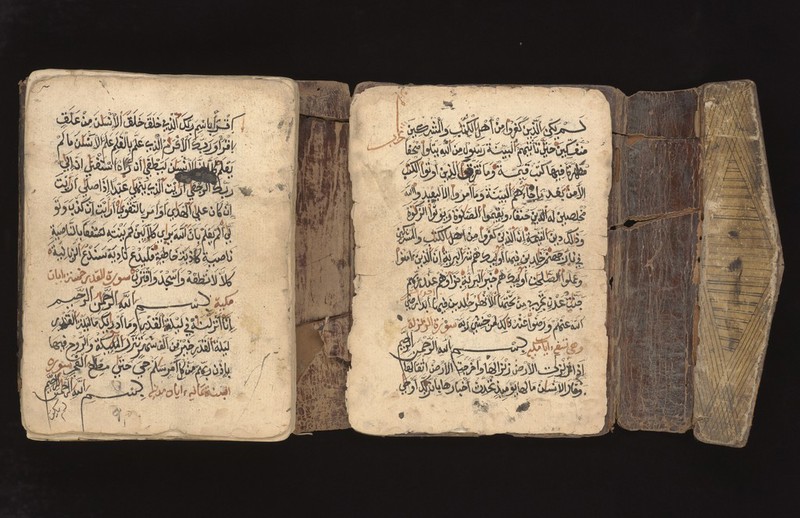 اقرا باسم ربك الذي خلق خلق الانسن من علق
اقرا وربك الاكرم الذي علم بالقلم علم الانسن ما لم
يعلم كلا ان الانسن ليطغى ان راه استغنى ان الى
ربك الرجعى ارايت الذي ينهى عبدا اذا صلى ارايت
ان كان على الهدى او امر بالتقوى ارايت ان كذب وتو
لى الم يعلم بان الله يرى كلا لئن لم ينته لنسفعا بالناصية
ناصية كاذبة خاطئة فليدع ناديه سندع الزبانية
كلا لا تطعه واسجد واقترب سورة القدر خمس ايات
مكية بسم الله الرحمن الرحيم
انا انزلنه في ليلة القدر وما ادريك ما ليلة القدر
ليلة القدر خير من الف شهر تنزل الملئكة والروح فيها
باذن ربهم من كل امر سلم هي حتى مطلع الفجر سورة
ايات مدنية بسم الله الرحمن الرحيم
لم يكن الذين كفروا من اهل الكتب والمشركين
منفكين حتى تاتيهم البينة رسول من الله يتلوا صحفا
مطهرة فيها كتب قيمة وما تفرق الذين اوتوا الكتب
الا من بعد ما جاءتهم البينة وما امروا الا ليعبدوا الله
مخلصين له الدين حنفاء ويقيموا الصلوة ويوتوا الزكوة
وذلك دين القيمة ان الذين كفروا من اهل الكتب والمشركين
في نار جهنم خلدين فيها اوليك هم شر البرية ان الذين امنوا
وعملوا الصلحت اوليك هم خير البرية جزاوهم عند ربهم
جنت عدن تجري من تحتها الانهر خلدين فيها ابدا رضي
الله عنهم ورضوا عنه ذلك لمن خشي ربه سورة الزلزلة
بسم الله الرحمن الرحيم
اذا زلزلت الارض زلزالها واخرجت الارض اثقالها
وقال الانسان ما لها يوميذ تحدث اخبارها بان ربك اوحى